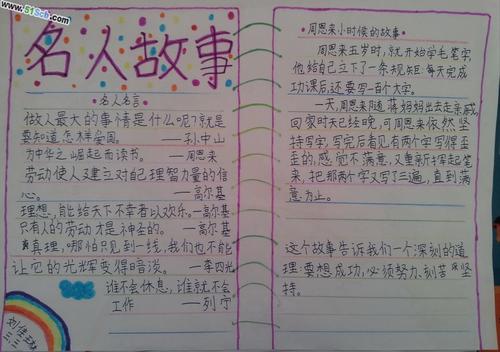 www.51Sch.com
名人故事
·名人名言·
做人最大的事情是什么呢?就是
要知道怎样爱国。——孙中山
为中华之崛起而读书。——周恩来
劳动使人建立对自己理智力量的信
心。——高尔基
理想,能给天下不幸者以欢乐。—高尔基
只有人的劳动才是神圣的。——高尔基
真理,哪怕只见到一线,我们也不能
让它的光辉变得暗淡。—李四光
谁不会休息,谁就不会
工作——列宁
刘佳琳
三三
·周恩来小时候的故事·
周恩来五岁时,就开始学毛笔字,
他给自己立下了一条规矩:每天完成
功课后,还要写一百个大字。
一天,周恩来随蒋妈妈出去走亲戚,
回家时天已经晚,可周恩来依然坚
持写字,写完后看见有两个字写得歪
歪的,感觉不满意,又重新挥起笔
来,把那两个字又写了三遍,直到满
意为止。
这个故事告诉我们一个深刻的道
理:要想成功,必须努力、刻苦、坚
持。